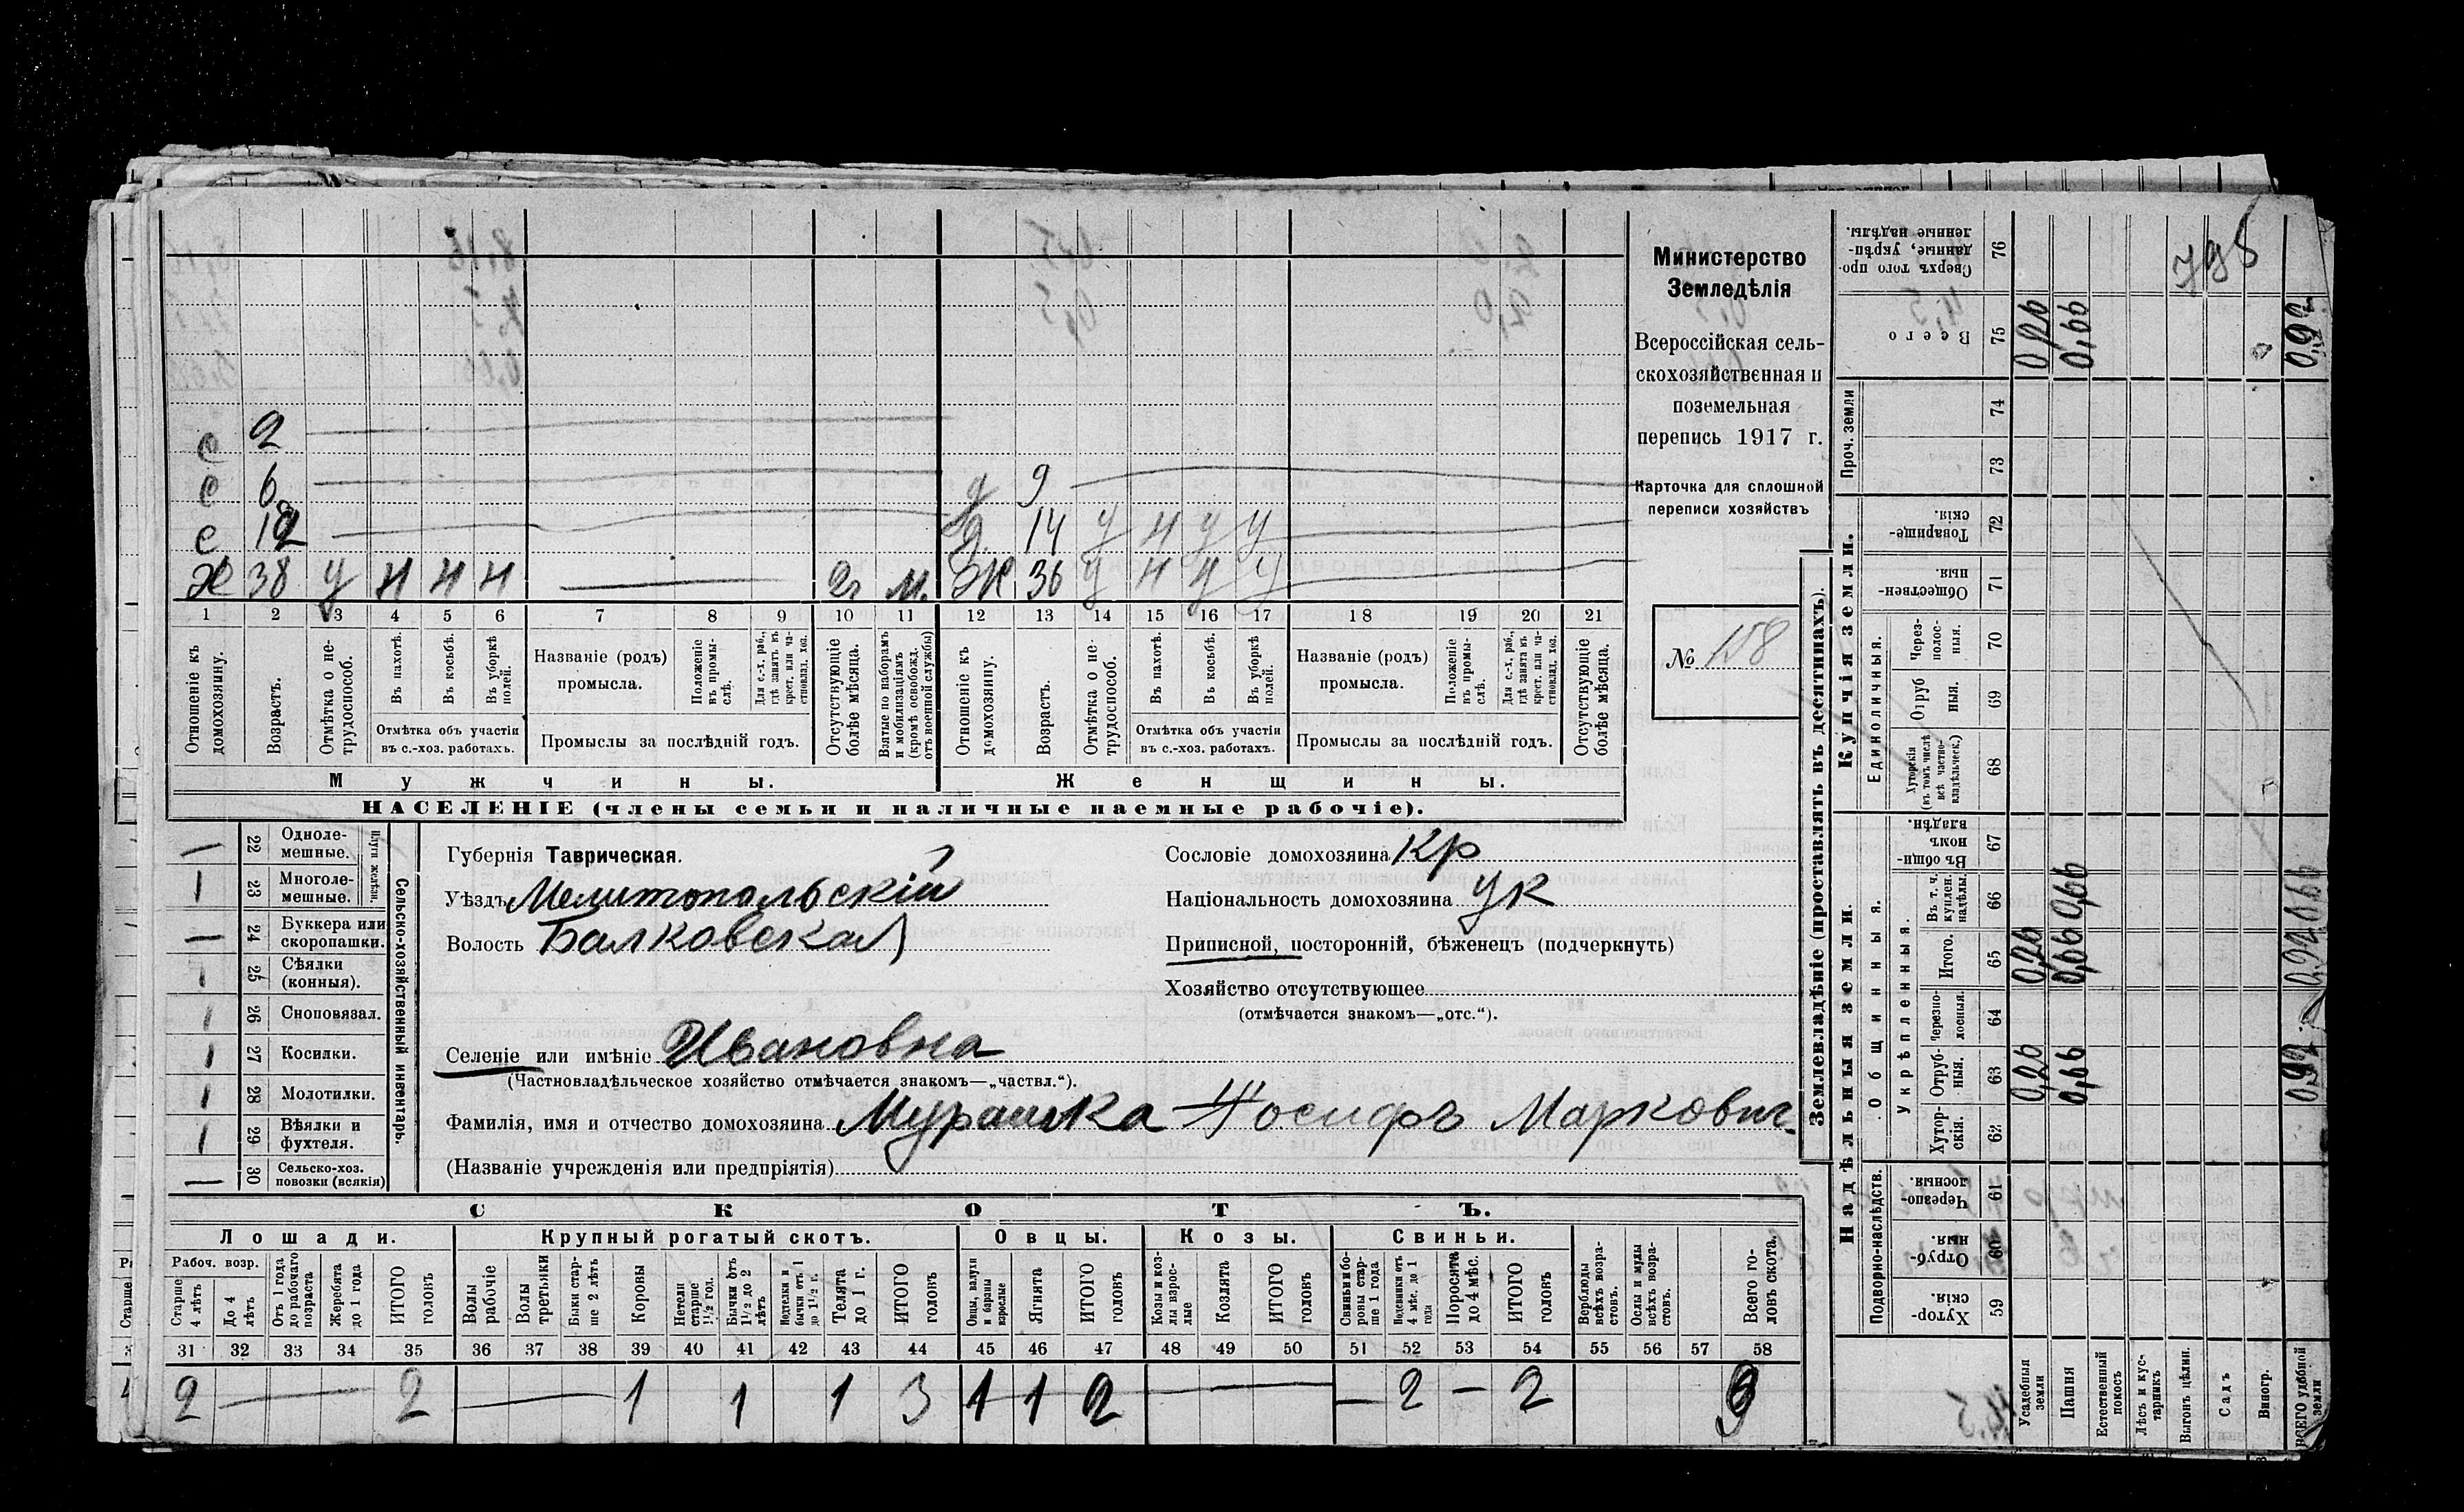 с 2
с 6 д 9
с 12 д 14 у н у у
х 38 у н н н 2г м. ж 36 у н н у
1 2 3 4 5 6 7 8 9 10 11 12 13 14 15 16 17 18 19 20 21
Отношеніе къ домохозяину.
Возрастъ.
Отмѣтка о нетрудоспособ.
Въ пахотѣ.
Въ косьбѣ.
Въ уборкѣ полей.
Отмѣтка объ участіи въ с.-хоз. работахъ.
Названіе (родъ) промысла.
Положеніе въ промыслѣ.
Для с.-х. раб., гдѣ занятъ въ крест. или частновлад. хоз.
Промыслы за послѣдній годъ.
Отсутствующіе болѣе мѣсяца.
Взятые по наборамъ и мобилизаціямъ (кромѣ освобожд. отъ военной службы)
Отношеніе къ домохозяину.
Возрастъ.
Отмѣтка о нетрудоспособ.
Въ пахотѣ.
Въ косьбѣ.
Въ уборкѣ полей.
Отмѣтка объ участіи въ с.-хоз. работахъ.
Названіе (родъ) промысла.
Положеніе въ промыслѣ.
Для с.-х. раб., гдѣ занята въ крест. или частновлад. хоз.
Промыслы за послѣдній годъ.
Отсутствующіе болѣе мѣсяца.
Мужчины. Женщины.
НАСЕЛЕНІЕ (члены семьи и наличные наемные рабочіе).
Министерство
Земледѣлія
Всероссійская сель-
скохозяйственная и
поземельная
перепись 1917 г.
Карточка для сплошной
переписи хозяйствъ
№ 158
— 22 Одноле-
мешные.
1 23 Многоле-
мешные.
Плуги желѣзн.
— 24 Буккера или
скоропашки.
1 25 Сѣялки
(конныя).
1 26 Сноповязал.
1 27 Косилки.
1 28 Молотилки.
1 29 Вѣялки и
фухтеля.
— 30 Сельско-хоз.
повозки (всякія)
Сельско-хозяйственный инвентарь.
Губернія Таврическая.
Уѣздъ Мелитопольскій
Волость Балковская
Селеніе или имѣніе Ивановка
(Частновладѣльческое хозяйство отмѣчается знакомъ—„частвл.“).
Фамилія, имя и отчество домохозяина Мурашка Іосифъ Маркович
(Названіе учрежденія или предпріятія)
Сословіе домохозяина Кр
Національность домохозяина Ук
Приписной, посторонній, бѣженецъ (подчеркнуть)
Хозяйство отсутствующее
(отмѣчается знакомъ—„отс.“).
СКОТЪ.
Лошади. Крупный рогатый скотъ. Овцы. Козы. Свиньи.
Рабоч. возр.
Старше 4 лѣтъ
До 4 лѣтъ
Отъ 1 года до рабочаго возраста
Жеребята до 1 года
ИТОГО головъ
Волы рабочіе
Волы третьяки
Быки старше 2 лѣтъ
Коровы
Нетели старше 1½ год.
Бычки отъ 1½ до 2 лѣтъ
Подтелки и бычки отъ 1 до 1½ г.
Телята до 1 г.
ИТОГО головъ
Овцы, валухи и бараны взрослые
Ягнята
ИТОГО головъ
Козы и козлы взрослые
Козлята
ИТОГО головъ
Свиньи и боровы старше 1 года
Подсвинки отъ 4 мѣс. до 1 года
Поросята до 4 мѣс.
ИТОГО головъ
Верблюды всѣхъ возрастовъ.
Ослы и мулы всѣхъ возрастовъ.
Всего головъ скота.
31 32 33 34 35 36 37 38 39 40 41 42 43 44 45 46 47 48 49 50 51 52 53 54 55 56 57 58
2 — 2 — 1 1 1 3 1 1 2 — — 2 — 2 9
Землевладѣніе (проставлять въ десятинахъ).
Надѣльныя земли. Купчія земли. Проч. земли
Подворно-наслѣдств.
Общинныя.
Укрѣпленныя.
Единоличныя.
Хуторскія. 59
Отрубныя. 60
Черезполосныя. 61
Хуторскія. 62
Отрубныя. 63 0,26 0,66 0,92
Черезполосныя. 64
Итого. 65 0,26 0,66 0,92
Въ т. ч. куплен. надѣлы. 66 0,66 0,66
Въ общинномъ владѣн. 67
Хуторскія (въ томъ числѣ всѣ частновладѣльческ.) 68
Отрубныя. 69
Черезполосныя. 70
Общественныя. 71
Товарищескія. 72
73
74
Всего 75 0,26 0,66 0,92
Сверхъ того проданные, укрѣпленные надѣлы. 76
Усадебныя земли
Пашня
Естественный покосъ
Лѣсъ и кустарникъ
Выгонъ цѣлин.
Садъ
Виногр.
ВСЕГО удобной земли